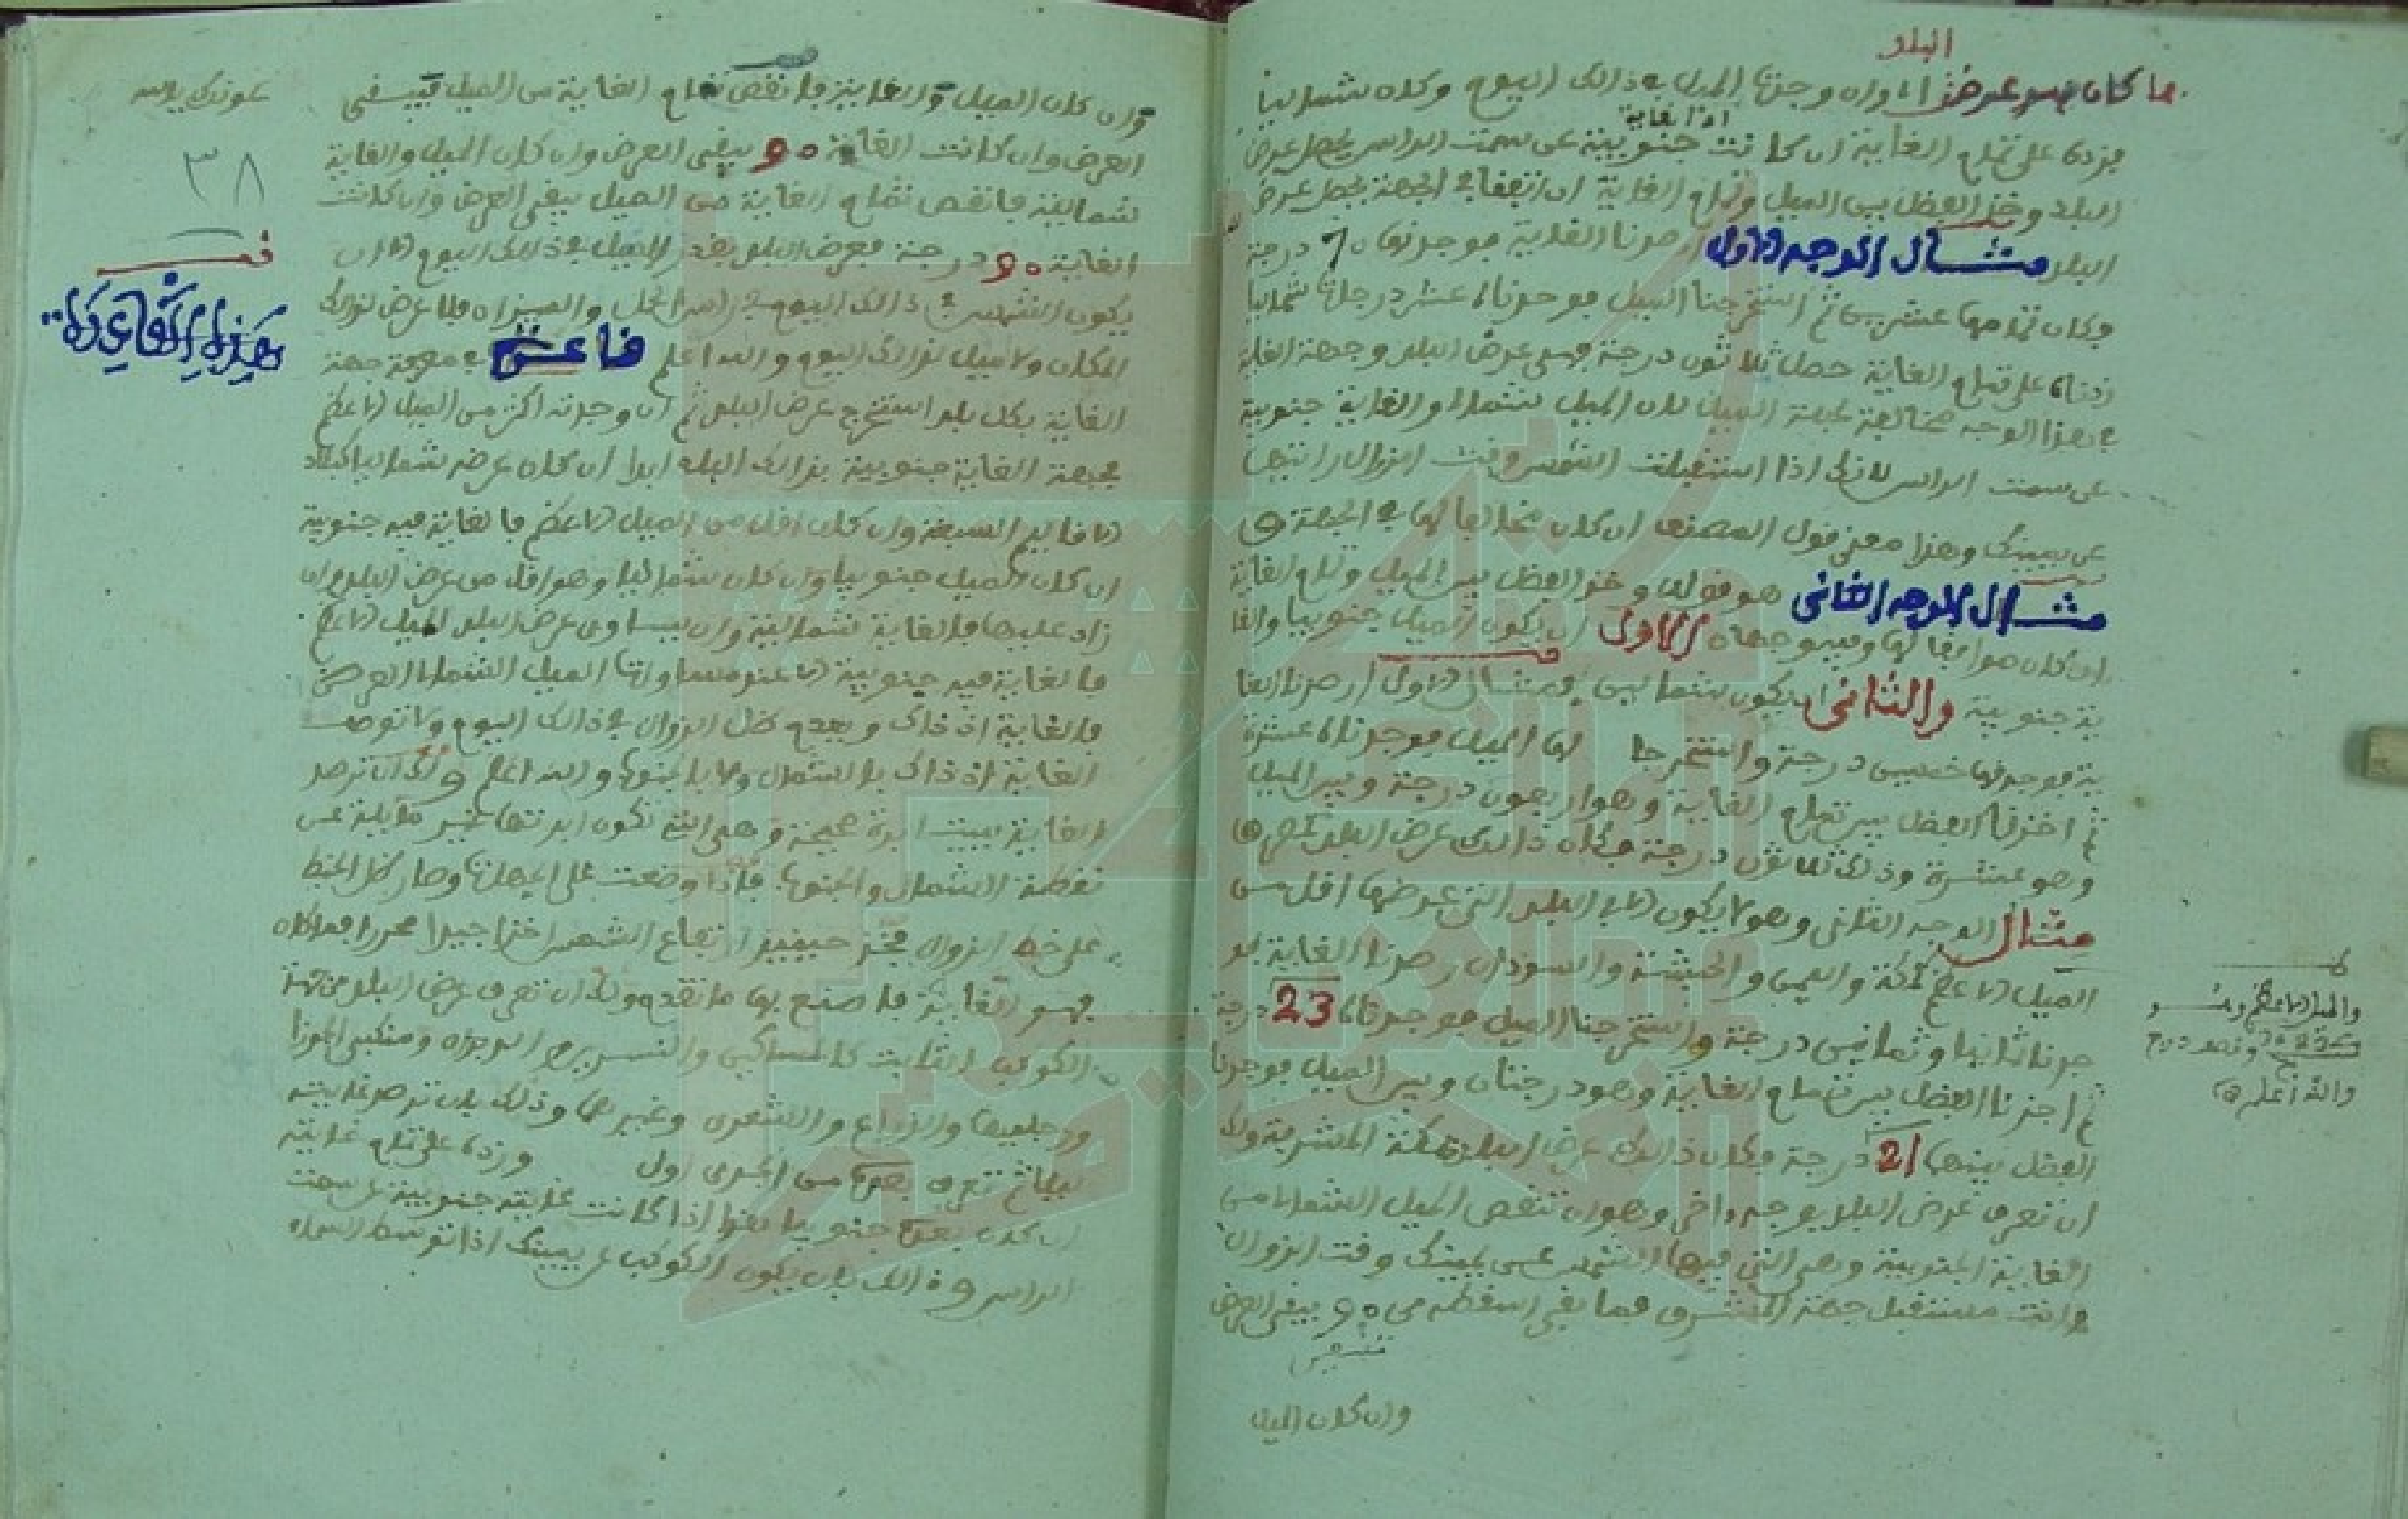 البلد
ما كان فهو عرض وجهة الميل في ذالك اليوم وكان شماليا
فزده على تمام الغاية ان كانت جنوبية عن سمت الراس يحصل عرض
البلد وخذ الفضل بين الميل وتمام الغاية ان اتفقا في الجهة يحصل عرض
البلد مثال الوجه الاول رصدنا الغاية فوجدناها 70 درجة
وكان تمامها عشرين ثم استخرجنا الميل فوجدناه عشر درجات شماليا
زدناه على تمام الغاية حصل ثلاثون درجة وهي عرض البلد وجهة الغاية
في هذا الوجه مخالفة لجهة الميل لان الميل شمالا والغاية جنوبية
عن سمت الراس لانك اذا استقبلت الشمس وقت الزوال رايتها
عن يمينك وهذا معنى قول المصنف ان كان مخالفا لها في الجهة
مثال الوجه الثاني هو قوله وخذ الفضل بين الميل وتمام الغاية
ان كان موافقا لها وفيه وجهان الاول ان يكون الميل جنوبيا والغا
ية جنوبية والثاني ان يكون شماليين فمثال الاول رصدنا الغا
ية فوجدناها خمسين درجة واستخرجنا لها الميل فوجدناه عشرة
ثم اخذنا الفضل بين تمام الغاية وهو اربعون درجة وبين الميل
وهو عشرة وذلك ثلاثون درجة فكان ذالك عرض البلد
مثال الوجه الثاني وهو لا يكون الا في البلد التي عرضها اقل من
الميل الاعظم كمكة واليمن والحبشة والسودان رصدنا الغاية فو
جدناها ثمانيا وثمانين درجة واستخرجنا الميل فوجدناه 23 درجة
ثم اخذنا الفضل بين تمام الغاية وهو درجتان وبين الميل فوجدنا
الفضل بينهما 21 درجة فكان ذالك عرض البلد مكة المشرفة ولك
ان تعرف عرض البلد بوجه اخر وهو ان تنقص الميل الشمالي من
الغاية الجنوبية وهي التي فيها الشمس عن يمينك وقت الزوال
وانت مستقبل جهة المشرق فما بقي اسقطه من 90 يبقى العرض
وان كان الميل
والميل الاعظم
والله اعلم
وان كان الميل والغاية فانقص تمام الغاية من الميل يبقى
العرض وان كانت الغاية 90 يبقى العرض وان كان الميل والغاية
شمالية فانقص تمام الغاية من الميل يبقى العرض وان كانت
الغاية 90 درجة فعرض البلد بقدر الميل في ذالك اليوم الا ان
يكون الشمس في ذالك اليوم في راس الحمل والميزان فلا عرض لذالك
المكان ولا ميل لذالك اليوم والله اعلم فاعدة في معرفة جهة
الغاية بكل بلد استخرج عرض البلد ثم ان وجدته اكثر من الميل الاعظم
فجهة الغاية جنوبية بذالك البلد ابدا ان كان عرضه شماليا كبلاد
الاقاليم السبعة وان كان اقل من الميل الاعظم فالغاية فيه جنوبية
ان كان الميل جنوبيا وان كان شماليا وهو اقل من عرض البلد وان
زاد عليها فالغاية شمالية وان يساوي عرض البلد الميل الاعظم
فالغاية فيه جنوبية الا عند مساواتها الميل الشمالي العرض
فالغاية اذ ذاك ويعدم ظل الزوال في ذالك اليوم ولا توصف
الغاية اذ ذاك بالشمال ولا بالجنوب والله اعلم ولك ان ترصد
الغاية ببيت ابرة صحيحة وهي التي تكون ابرتها غير مايلة عن
نقطة الشمال والجنوب فاذا وضعت على الجهات وصار ظل الخيط
على خط الزوال فخذ حينيذ ارتفاع الشمس اخذا جيدا محررا فما كان
فهو الغاية فاصنع بها ما تقدم ولك ان تعرف عرض البلد من جهة
الكوكب الثابت كالسماكين والنسرين والدبران ومنكبي الجوزا
ورجليها والذراع والشعرى وغيرها وذلك بان ترصد غايته
ليلا ثم تعرف بعده من الجدي اول وزده على تمام غايته
ان كان بعده جنوبيا هذا اذا كانت غايته جنوبية عن سمت
الراس وذالك بان يكون الكوكب عن يمينك اذا توسط السماء
٣٨
قف
هذه القاعدة